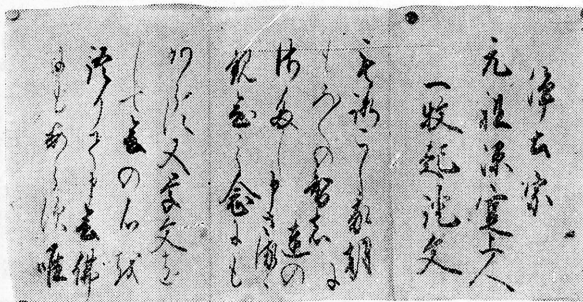 浄土宗
元祖源空上人
一枚起請文
もろこし我朝に
もろ〱の智者達の
沙汰し申さるゝ
観念の念にも
あらす又学文を
して念の心を
悟りて申念佛
にもあらす唯